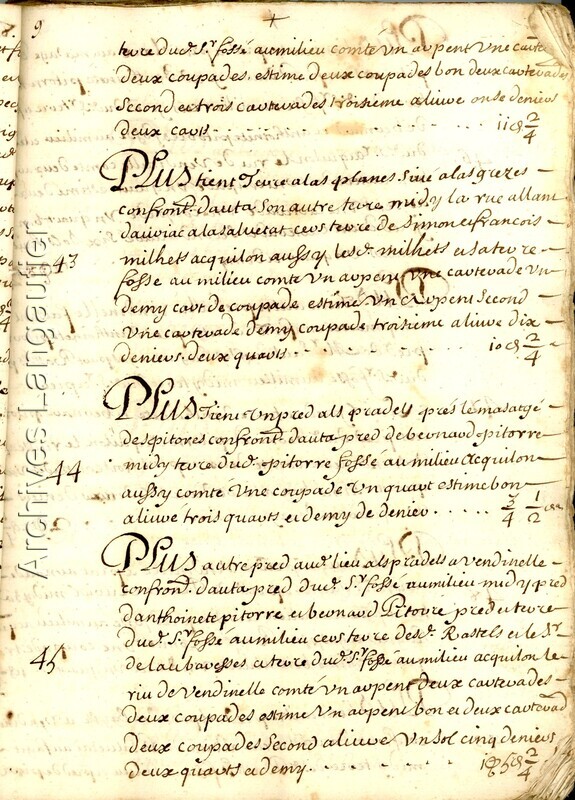 9
terre dud. Sr. fossé au milieu comté un arpent une carte
deux coupades, estime deux coupades bon deux cartevades
Second et trois cartevades troisieme alivre onse deniers
deux carts 11 d 2/4
PLus tient Terre a las planes Sive a las grezes
confront. d'auta Son autre terre midy la rue allant
d'auriac a la salvetat cers terre de Simon et francois
milhets acquilon aussy lesd. milhets et sa terre
fosse au milieu comté un arpent une cartevade un
demy cart de coupade estime un arpent Second
une cartevade demy coupade troisieme alivre dix
deniers deux quarts 10 d 2/4
43
PLus Tient un pred als pradels prés le masatgé
des pitorres confront. d'auta pred de bernard pitorre
midy terre dud. pitorre fossé au milieu Acquilon
aussy comté une coupade un quart estime bon
alivre trois quarts et demy de denier 3/4 1/2
44
PLus autre pred aud. lieu als pradels a vendinelle
confront. d'auta pred dud. Sr. fossé au milieu midy pred
d'anthoinete pitorre et bernard Pitorre pred et terre
dud. Sr. fossé au milieu cers terre desd. Rastels et le Sr.
de laubaresses et terre dud. Sr. fossé au milieu acquilon le
riu de vendinelle comté un arpent deux cartevades
deux coupades estime un arpent bon et deux cartevad
deux coupades Second alivre un sol cinq deniers
deux quarts et demy 1 s 5 d 2/4
45
Archives Langauzer